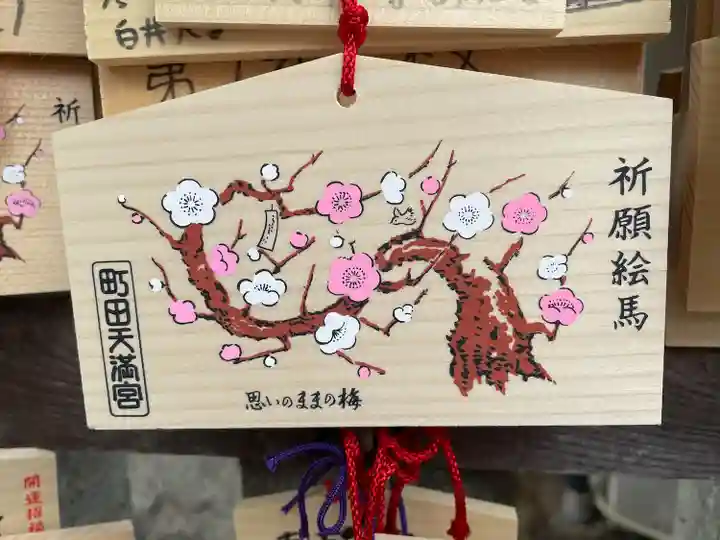 白井
祈
祈願絵馬
町田天満宮
思いのままの梅
開運招福